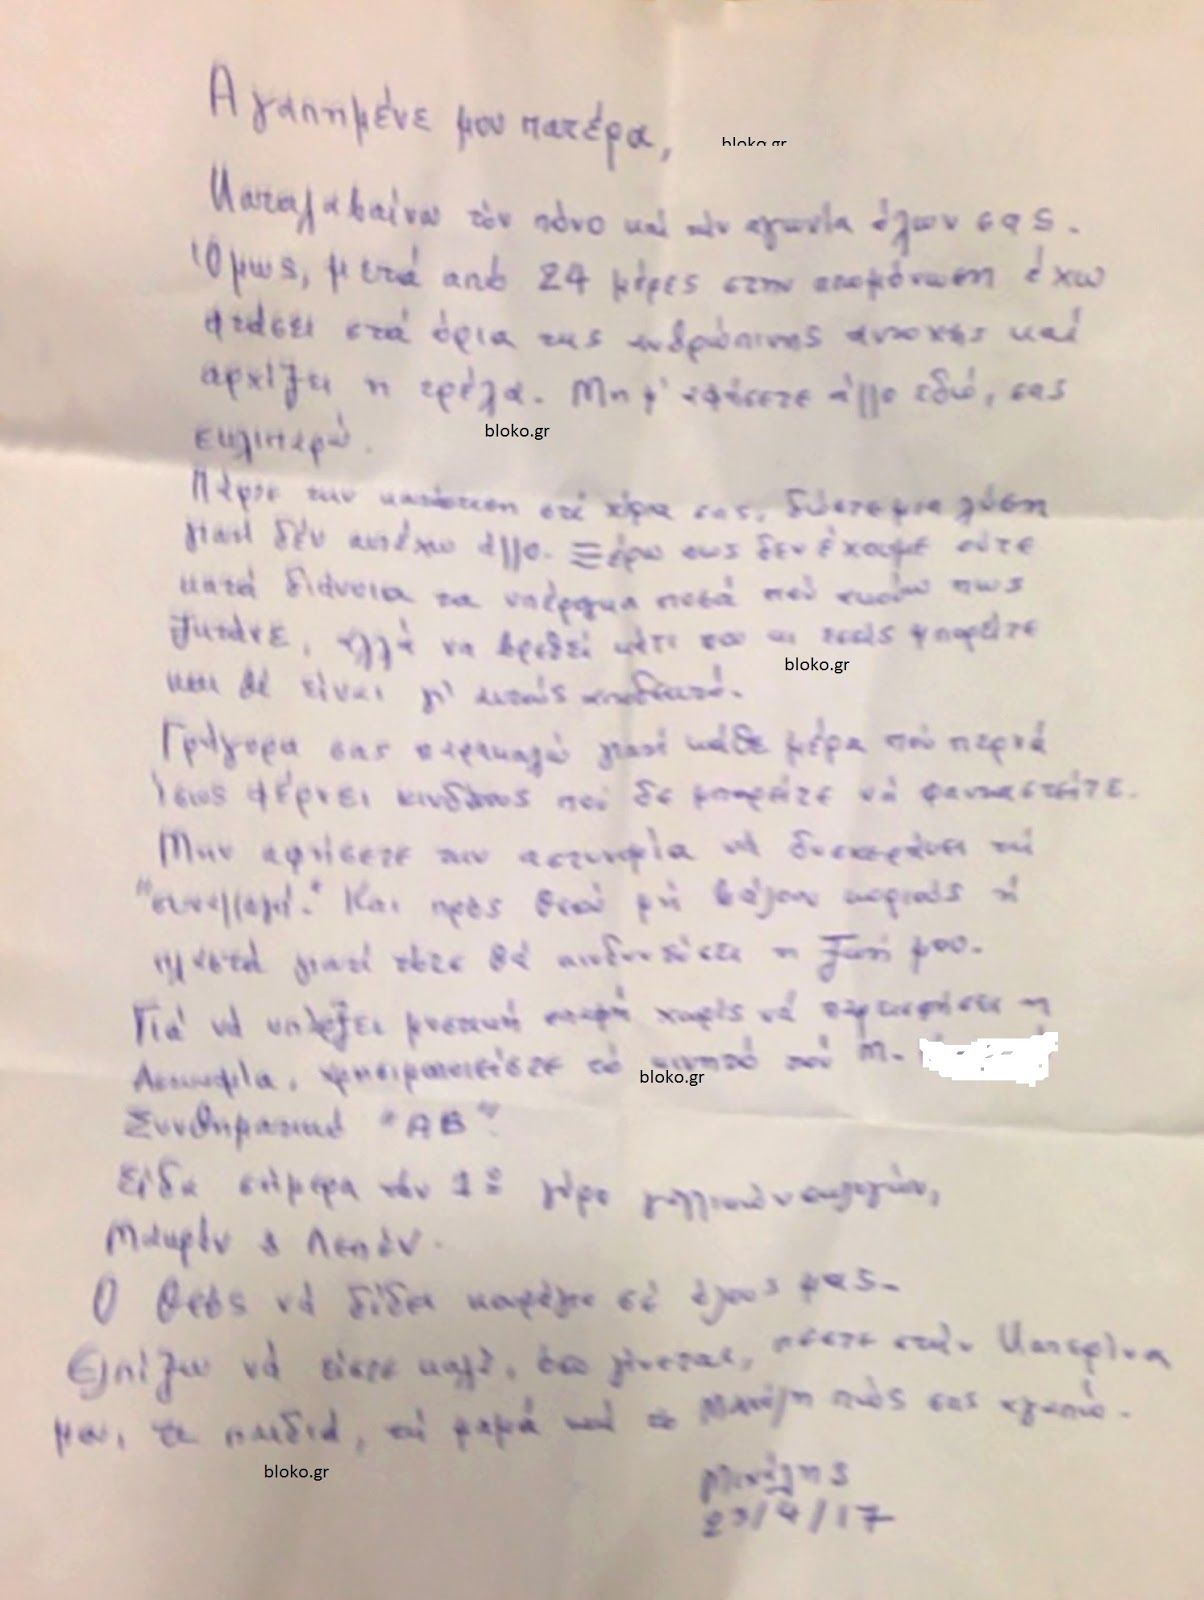 Αγαπημένε μου πατέρα,
bloko.gr
Καταλαβαίνω τόν πόνο καί τήν αγωνία όλων σας.
Όμως, μετά από 24 μέρες στην απομόνωση έχω
φτάσει στά όρια της ανθρώπινης αντοχής καί
αρχίζει η τρέλα. Μη μ' αφήσετε άλλο εδώ, σας
εκλιπαρώ.
bloko.gr
Πάρτε την κατάσταση στά χέρια σας, δώστε μια λύση
γιατί δέν αντέχω άλλο. Ξέρω πως δεν έχουμε ούτε
κατά διάνοια τα υπέρογκα ποσά πού πως
ζητάνε, αλλά να βρεθεί κάτι που κι εσείς μπορείτε
bloko.gr
και θά είναι γι' αυτούς αποδεκτό.
Γρήγορα σας παρακαλώ γιατί κάθε μέρα πού περνά
ίσως φέρνει κινδύνους πού δε μπορείτε νά φανταστείτε.
Μην αφήσετε την αστυνομία νά δυσκολέψει τή
"συναλλαγή." Και πρός Θεού μή βάλουν κοριούς ή
πλαστά γιατί τότε θά κινδυνεύσει η ζωή μου.
Γιά νά υπάρξει μυστική επαφή χωρίς νά παρεμβαίνει η
Αστυνομία, χρησιμοποιείστε τό κινητό τού Μ.
bloko.gr
Συνθηματικό "ΑΒ".
Είδα σήμερα τόν 1º γύρο γαλλικών εκλογών,
Μακρόν & Λεπέν.
Ο Θεός νά δίδει κουράγιο σέ όλους μας.
Ελπίζω νά είστε καλά, όσο γίνεται, πέστε στήν Κατερίνα
μου, τα παιδιά, τή μαμά καί το Μανώλη πώς σας αγαπώ.
bloko.gr
Μιχάλης
23/4/17